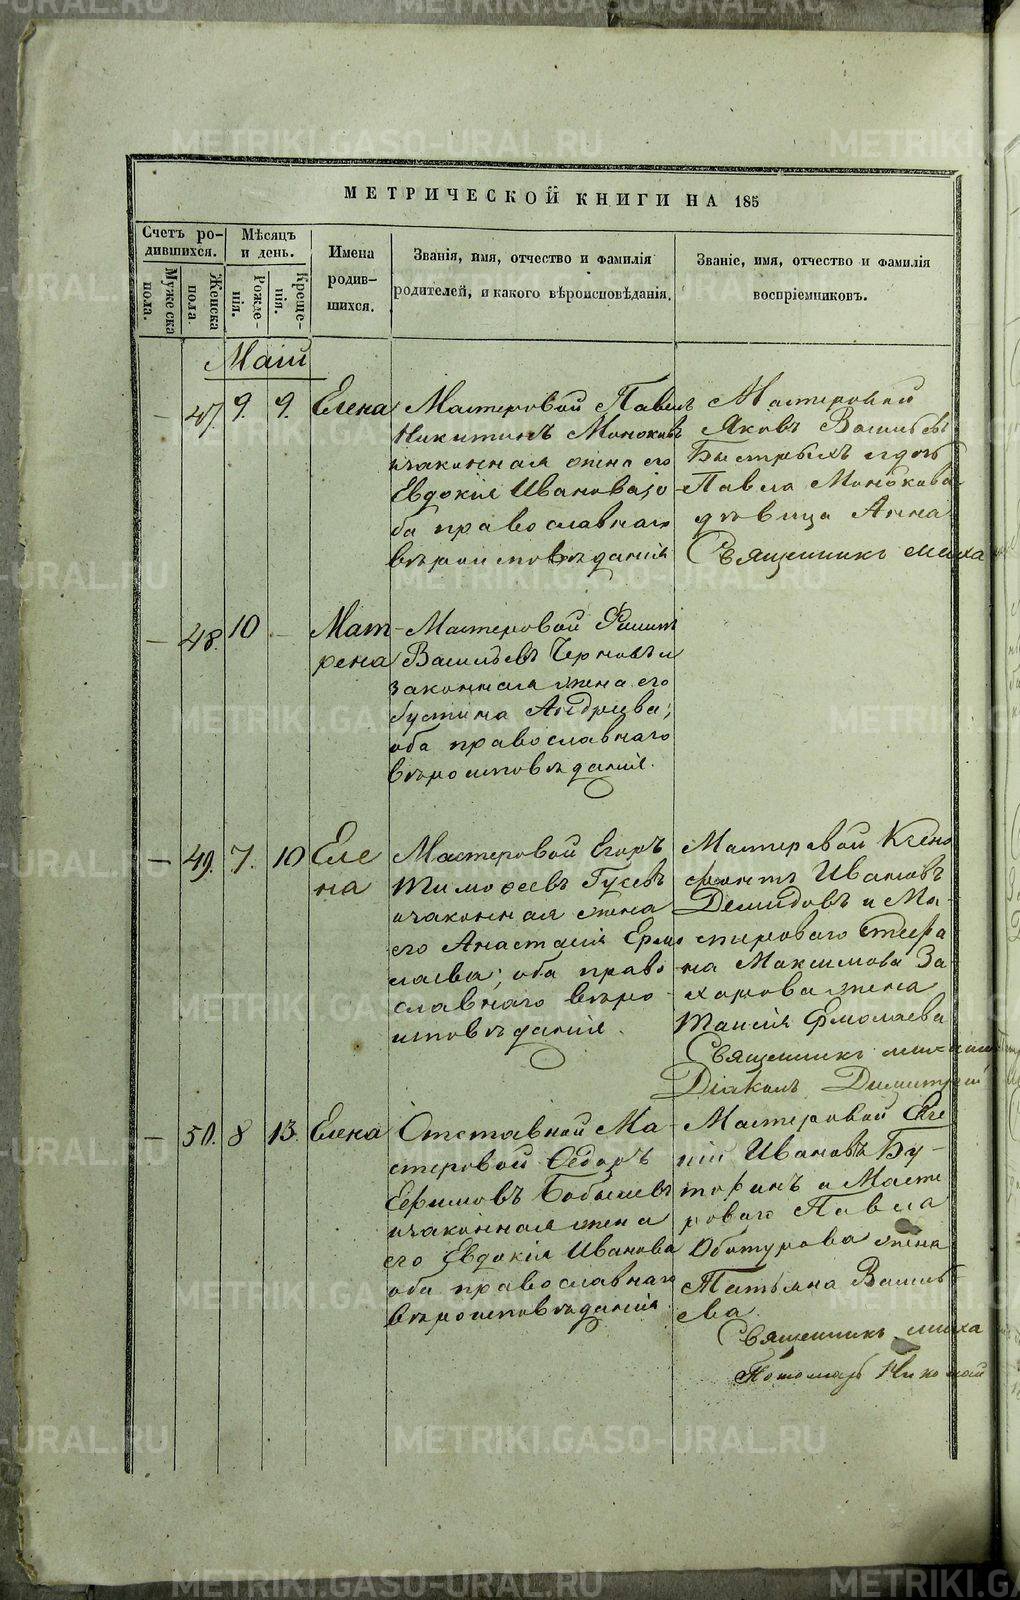 МЕТРИЧЕСКОЙ КНИГИ НА 185
Счетъ ро-
дившихся.
Мѣсяцъ
и день.
Имена
родив-
шихся.
Званія, имя, отчество и фамилія
родителей, и какого вѣроисповѣданія.
Званіе, имя, отчество и фамилія
воспріемниковъ.
Мужеска
пола.
Женска
пола
Рожде-
нія.
Креще-
нія.
Маій
— 47. 9. 9. Елена
Мастеровой Павелъ
Никитинъ
изаконная жена его
Евдокія Иванова; о-
ба православнаго
вѣроисповѣданія
Мастеровой
Яковъ Васильевъ
Быстрыхъ и дочь
Павла
дѣвица Анна
Священникъ Миха
— 48. 10 — Мат-
рена
Мастеровой Филипъ
Васильевъ Черновъ и
законная жена его
Густина Андреева;
оба православнаго
вѣроисповѣданія.
— 49. 7. 10 Еле
на
Мастеровой Егоръ
Тимофеевъ Гусевъ
изаконная жена
его Анастасія Ермо
лаева; оба право
славнаго вѣро-
исповѣданія.
Мастеровой Ксено
фонтъ Ивановъ
Демидовъ и Ма-
стероваго Стефа
на Максимова За-
харова жена
Таисія Ермолаева
Священникъ
Діаконъ Димитрій
— 50. 8 13. Елена
Отставной Ма-
стеровой Ѳедоръ
Ефимовъ Бобылевъ
изаконная жена
его Евдокія Иванова
оба православнаго
вѣроисповѣданія
Мастеровой Евге
ній Ивановъ Бу-
торинъ и Масте
роваго Павла
Обатурова жена
Татьяна Василь
ева.
Священникъ Миха
Пономарь Николай
METRIKI.GASO-URAL.RU